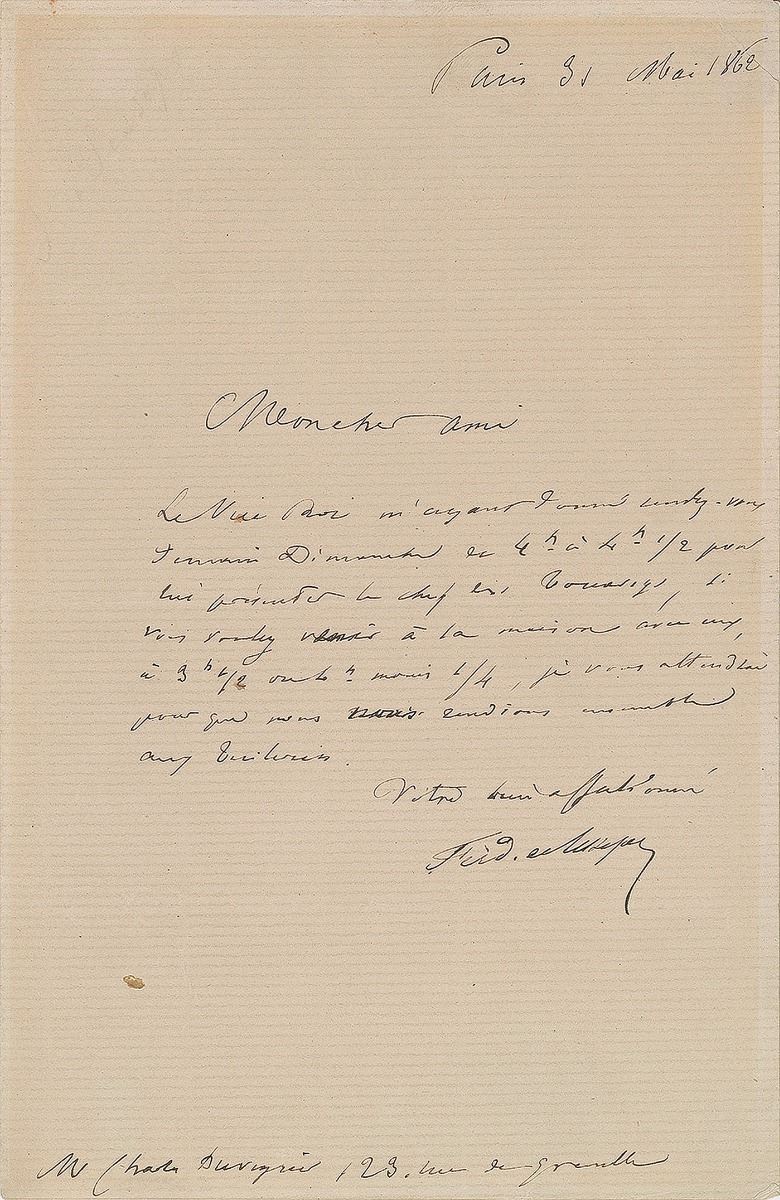 Paris 31 Mai 1862
Mon cher ami
Le Vice Roi m'ayant donné rendez-vous
demain Dimanche de 4h à 4h 1/2 pour
lui présenter le chef des Touaregs, si
vous voulez venir à la maison avec eux,
à 3h 1/2 ou 4h moins 1/4, je vous attendrai
pour que nous nous rendions ensemble
aux Tuileries.
Votre bien affectionné
Ferd. de Lesseps
Mr Charles Duveyrier 123. rue de Grenelle